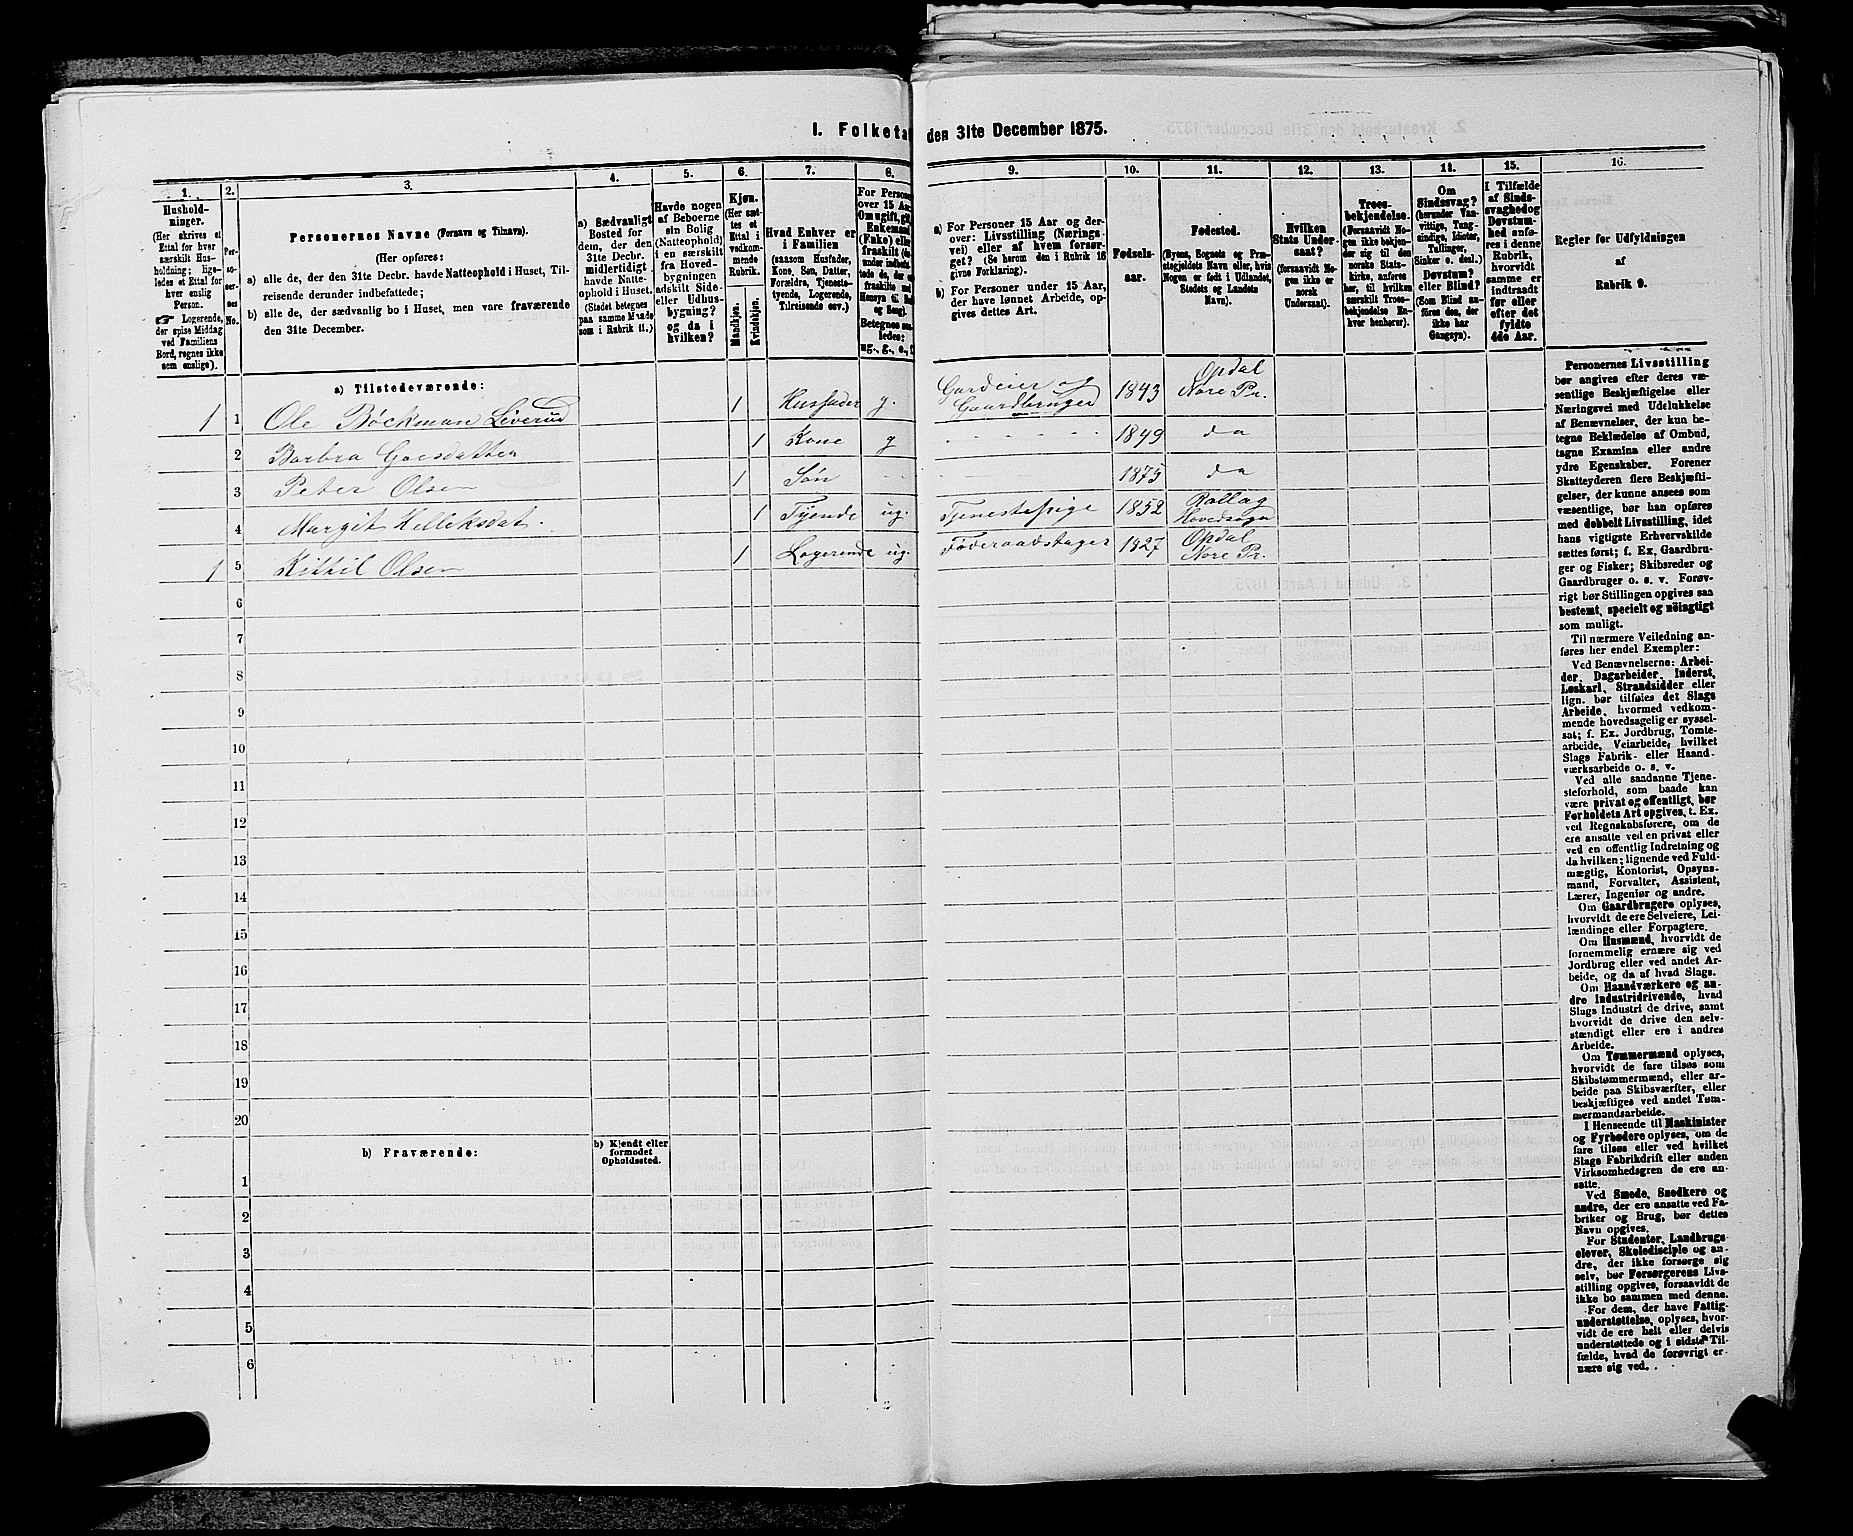 I. Folketæ
den 31te December 1875.
1. 2. 3. 4. 5. 6. 7. 8. 9. 10. 11. 12. 13. 14. 15. 16.
Hushold-
ninger.
(Her skrives et
Ettal for hver
særskilt Hus-
holdning; lige-
ledes et Ettal for
hver enslig
Person.
☞ Logerende,
der spise Middag
ved Familiens
Bord, regnes ikke
som enslige).
Per-
so-
ner-
nes
No.
Personernes Navne (Fornavn og Tilnavn).
(Her opføres:
a) alle de, der den 31te Decbr. havde Natteophold i Huset, Til-
reisende derunder indbefattede;
b) alle de, der sædvanlig bo i Huset, men vare fraværende
den 31te December.
a) Sædvanligt
Bosted for
dem, der den
31te Decbr.
midlertidigt
havde Natte-
ophold i Huset.
(Stedet betegnes
paa samme Maade
som i Rubrik 11.)
Havde nogen
af Beboerne
sin Bolig
(Natteophold)
i en særskilt
fra Hoved-
bygningen
adskilt Side-
eller Udhus-
bygning?
og da i
hvilken?
Kjøn.
(Her sæt-
tes et
Ettal i
vedkom-
mende
Rubrik.
Mandkjøn.
Kvindekjøn.
Hvad Enhver er
i Familien
(saasom Husfader,
Kone, Søn, Datter,
Forældre, Tjeneste-
tyende, Logerende,
Tilreisende osv.)
a) For Personer 15 Aar og der-
over: Livsstilling (Nærings-
vei) eller af hvem forsør-
get? (Se herom den i Rubrik 16
givne Forklaring).
b) For Personer under 15 Aar,
der have lønnet Arbeide, op-
gives dettes Art.
Fødsels-
aar.
Fødested.
(Byens, Sognets og Præ-
stegjeldets Navn eller, hvis
Nogen er født i Udlandet,
Stedets og Landets
Navn).
Hvilken
Stats Under-
saat?
(forsaavidt No-
gen ikke er
norsk
Undersaat).
Troes-
bekjendelse.
(Forsaavidt No-
gen ikke bekjen-
der sig til den
norske Stats-
kirke, anføres
her, til hvilken
særskilt Troes-
bekjendelse En-
hver henhører).
Om
Sindssvag?
(herunder Van-
vittige, Tung-
sindige, Idioter,
Tullinger,
Sinker o. desl.)
Døvstum?
eller Blind?
(Som Blind an-
føres den, der
ikke har
Gangsyn).
I Tilfælde
af Sinds-
svaghed og
Døvstum-
hed anfø-
res i denne
Rubrik,
hvorvidt
samme er
indtraadt
før eller
efter det
fyldte
4de Aar.
Regler for Udfyldningen
af
Rubrik 9.
a) Tilstedeværende:
1 1 Ole Böckman Liverud 1 Husfader g. Gardeier og Gaardbruger 1843 Opdal Nore Pr.
2 Barbro Goesdatter 1 Kone g 1849 da
3 Peter Olsen 1 Sön 1875 da
4 Margit Helleksdat. 1 Tyende ug. Tjenestepige 1852 Rollag Hovedsogn
1 5 Kittil Olsen 1 Logerende ug. Föderaadstager 1827 Opdal Nore Pr.
6
7
8
9
10
11
12
13
14
15
16
17
18
19
20
b) Fraværende:
b) Kjendt eller
formodet
Opholdssted.
1
2
3
4
5
6
Personernes Livsstilling
bør angives efter deres væ-
sentlige Beskjæftigelse eller
Næringsvei med Udelukkelse
af Benævnelser, der kun be-
tegne Beklædelse af Ombud,
tagne Examina eller andre
ydre Egenskaber. Forener
Skatteyderen flere Beskjæfti-
gelser, der kunne ansees som
væsentlige, bør han opføres
med dobbelt Livsstilling, idet
hans vigtigste Erhvervskilde
sættes først; f. Ex. Gaardbru-
ger og Fisker; Skibsreder og
Gaardbruger o. s. v. Forøv-
rigt bør Stillingen opgives saa
bestemt, specielt og nöiagtigt
som muligt.
Til nærmere Veiledning an-
føres her endel Exempler:
Ved Benævnelserne: Arbei-
der, Dagarbeider, Inderst,
Løskarl, Strandsidder eller
lign. bør tilføies det Slags
Arbeide, hvormed vedkom-
mende hovedsagelig er syssel-
sat; f. Ex. Jordbrug, Tomte-
arbeide, Veiarbeide, hvilket
Slags Fabrik- eller Haand-
værksarbeide o. s. v.
Ved alle saadanne Tjene-
steforhold, som baade kan
være privat og offentligt, bør
Forholdets Art opgives, t. Ex.
ved Regnskabsførere, om de
ere ansatte ved en privat eller
ved en offentlig Indretning og
da hvilken; lignende ved Fuld-
mægtig, Kontorist, Opsyns-
mand, Forvalter, Assistent,
Lærer, Ingeniør og andre.
Om Gaardbrugere oplyses,
hvorvidt de ere Selveiere, Lei-
lændinge eller Forpagtere.
Om Husmænd, hvorvidt de
fornemmelig ernære sig ved
Jordbrug eller ved andet Ar-
beide, og da af hvad Slags.
Om Haandværkere og an-
dre Industridrivende, hvad
Slags Industri de drive, samt
hvorvidt de drive den selv-
stændigt eller ere i andres
Arbeide.
Om Tømmermænd oplyses,
hvorvidt de fare tilsøs som
Skibstømmermænd, eller ar-
beide paa Skibsværfter, eller
beskjæftiges ved andet Tøm-
mermandsarbeide.
I Henseende til Maskinister
og Fyrbødere oplyses, om de
fare tilsøs eller ved hvilket
Slags Fabrikdrift eller anden
Virksomhedsgren de ere an-
satte.
Ved Smede, Snedkere og
andre, der ere ansatte ved Fa-
briker og Brug, bør dettes
Navn opgives.
For Studenter, Landbrugs-
elever, Skoledisciple og an-
dre, der ikke forsørge sig
selv, bør Forsørgerens Livs-
stilling opgives, forsaavidt de
ikke bo sammen med denne.
For dem, der have Fattig-
understøttelse, oplyses, hvor-
vidt de ere helt eller delvis
understøttede og i sidste Til-
fælde, hvad de forøvrigt er-
nære sig ved.